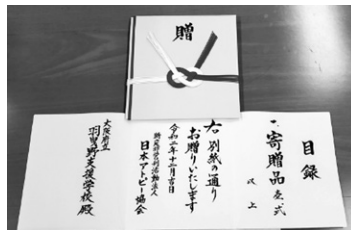 贈
目録
一、寄贈品 壱式
以上
右 別紙の通り
お贈りいたします
令和二年十二月吉日
特定非営利活動法人
日本アトピー協会
大阪府立
羽曳野支援学校 殿